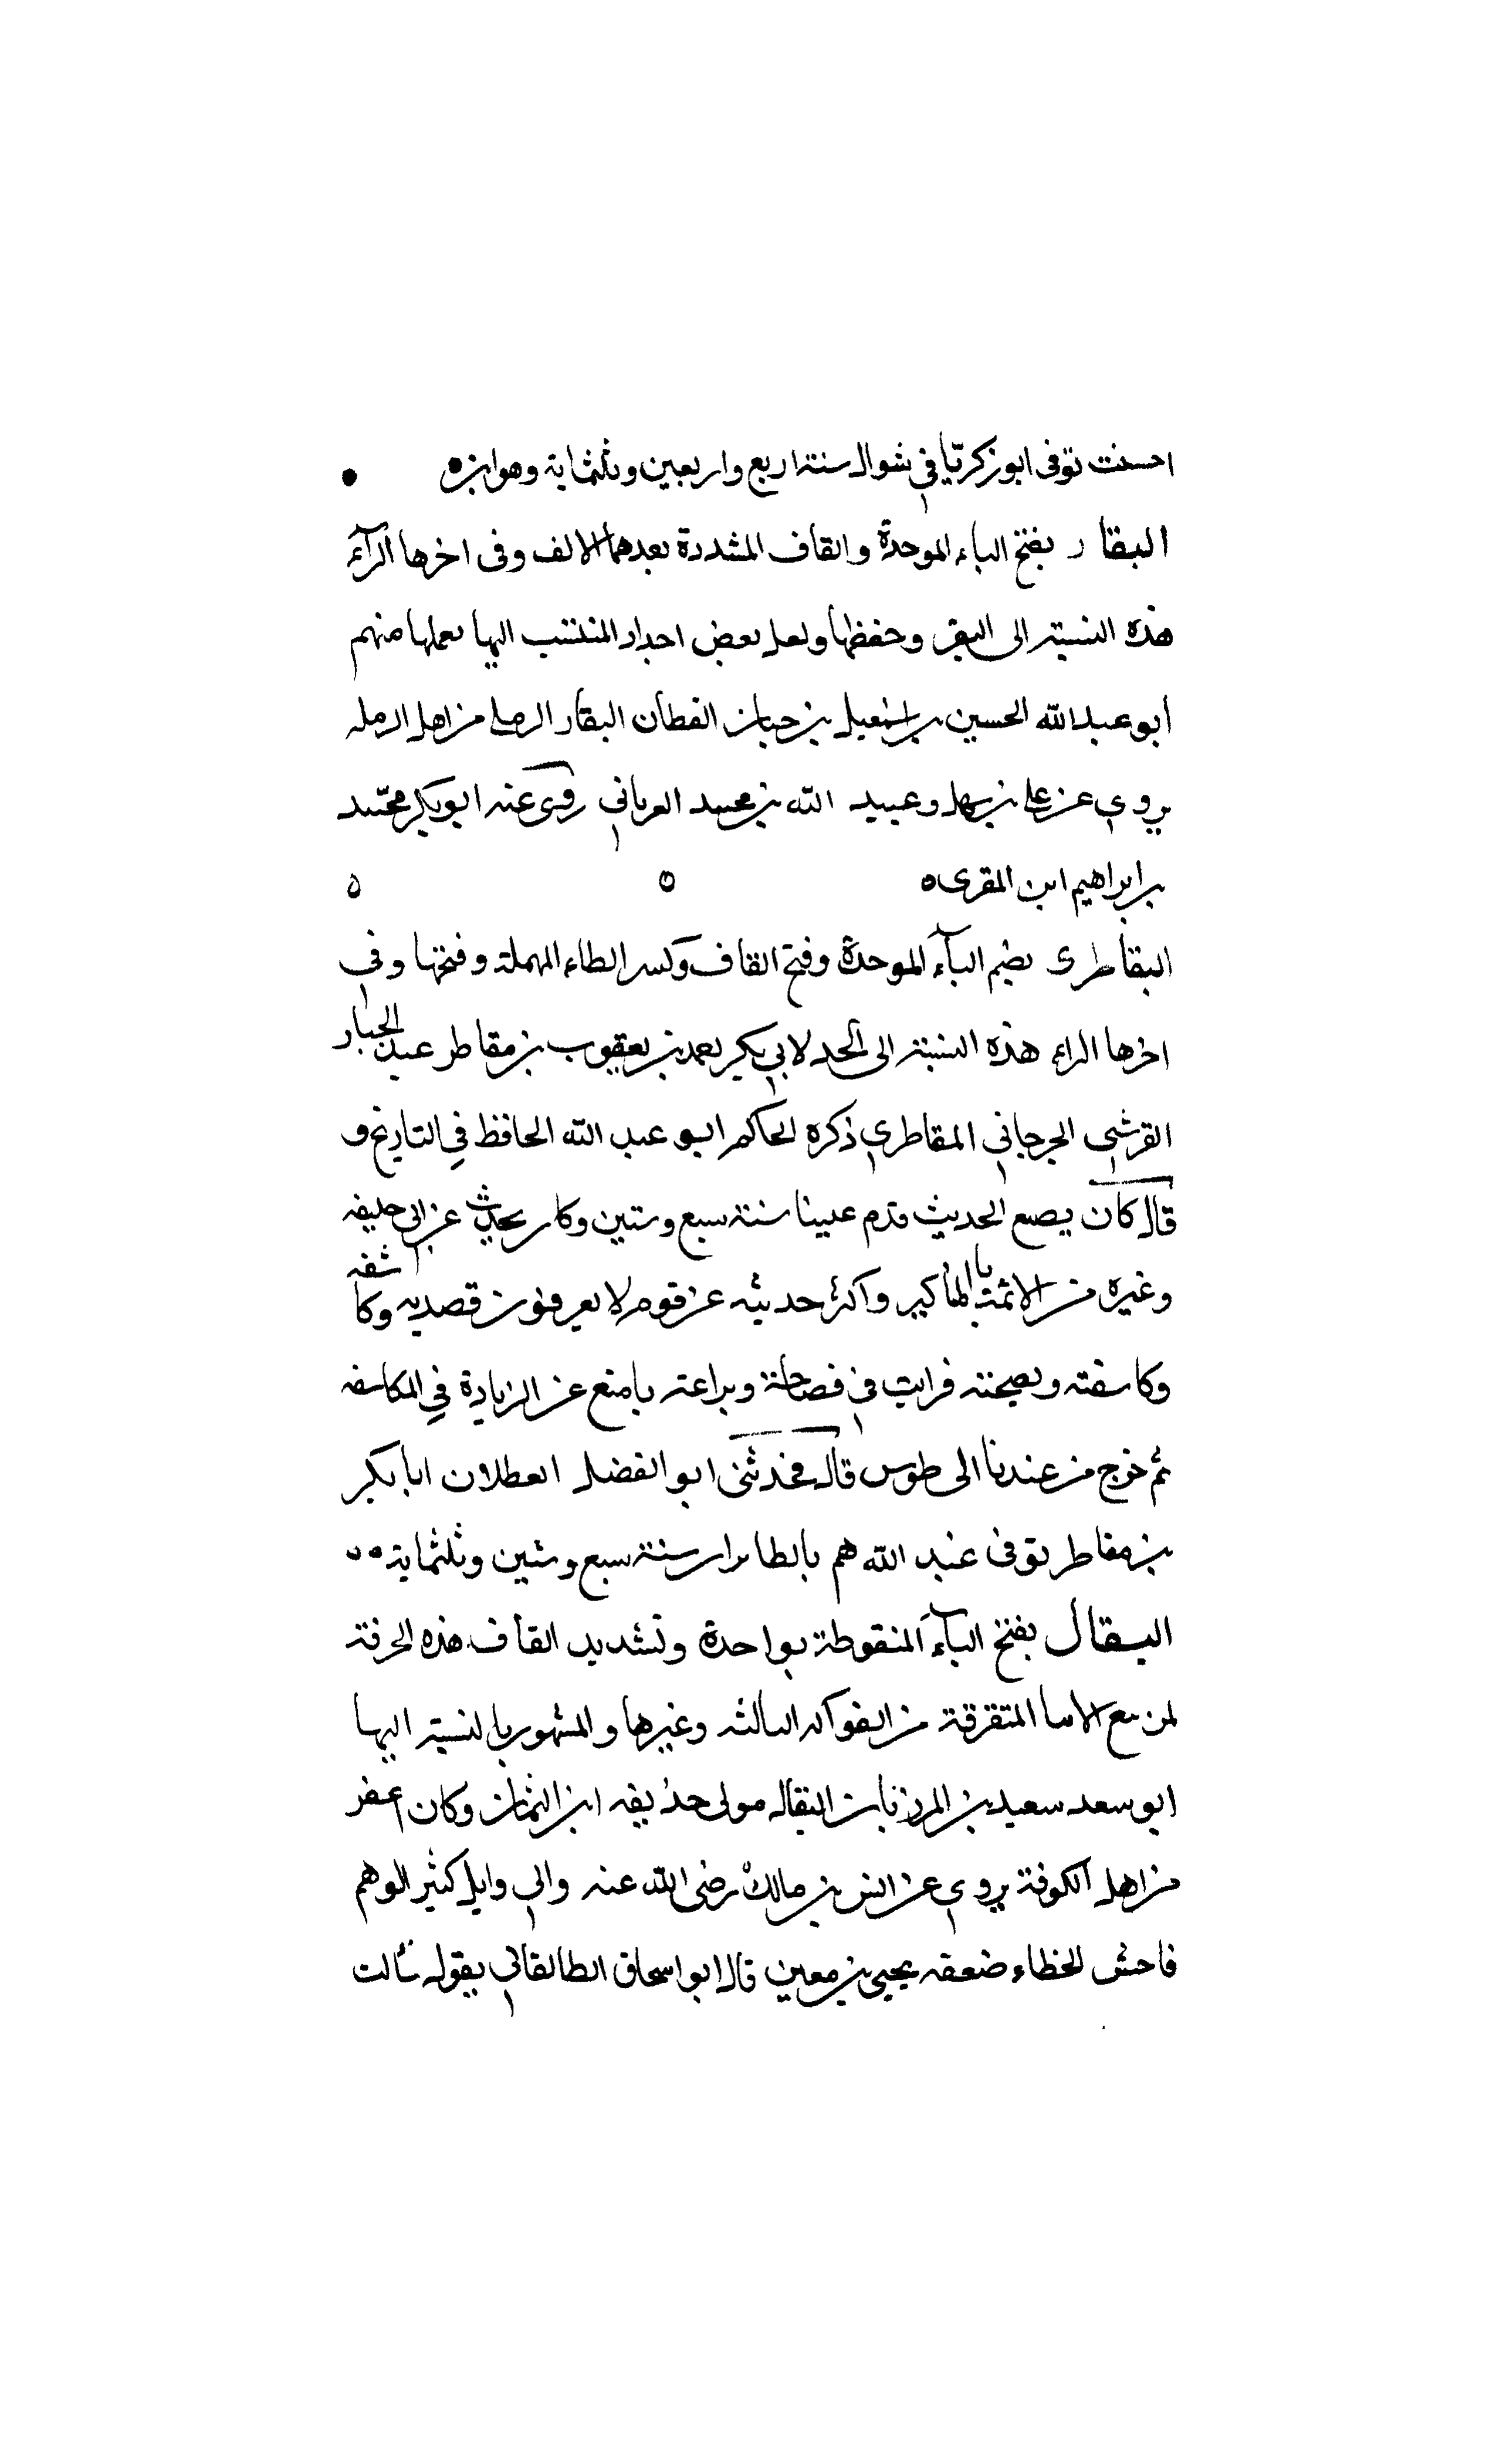 احسنت توفى ابو زكريّا في شوال سنة اربع واربعين وثلثماية وهو ابن ه
البقار بفتح الباء الموحدة والقاف المشددة بعدهما الالف وفى اخرها الرآء
هذه النسبة الى البقر وحفظها ولعل بعض اجداد المنتسب اليها يعملها منهم
ابو عبد الله الحسين بن اسمعيل بن حبان القطان البقار الرملى من اهل الرمله
يروي عن على بن سهل وعبيد الله بن محمد الفريابي روى عنه ابو بكر محمّد
بن ابراهيم ابن المقرى ه ه ه
البقاطرى بضم البآء الموحدة وفتح القاف وكسر الطاء المهملة وفتحها وفي
اخرها الراء هذه النسبة الى الجد لابي بكر محمد بن يعقوب بن مقاطر عبد الجبار
القرشي الجرجاني المقاطري ذكره الحاكم ابو عبد الله الحافظ في التاريخ و
قال كان يضع الحديث قدم علينا سنة سبع وستين وكان يحدث عن ابي خليفه
وغيره من الائمة بالمناكير واكثر حديثه عن قوم لا يعرفون قصديه وكا شفه
وكاشفته ونصحته فرايت في فصاحة وبراعته يا منع عن الزيادة في المكاسفه
ثم خرج من عندنا الى طوس قال فحدثنى ابو الفضل العطلان ابا بكر
بن مقاطر توفى عند الله هم بالطابران سنة سبع وستين وثلثماية ه ه
البقال بفتح البآء المنقوطة بواحدة وتشديد القاف هذه الحرفة
لمن يبيع الاشيا المتفرقة من الفواكه اليابسه وغيرها والمشهور بالنسبة اليها
ابو سعد سعيد بن المرزبان البقال مولى حذيفه ابن اليمان وكان اعور
من اهل الكوفة يروي عن انس بن مالك رضى الله عنه وابي وايل كثير الوهم
فاحش الخطاء ضعفه يحيى بن معين قال ابو اسحاق الطالقاني يقول سالت